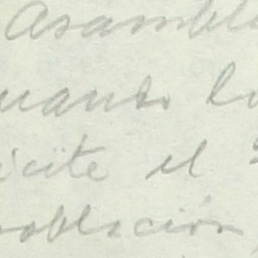 Asamble
uando lo
icite el
población